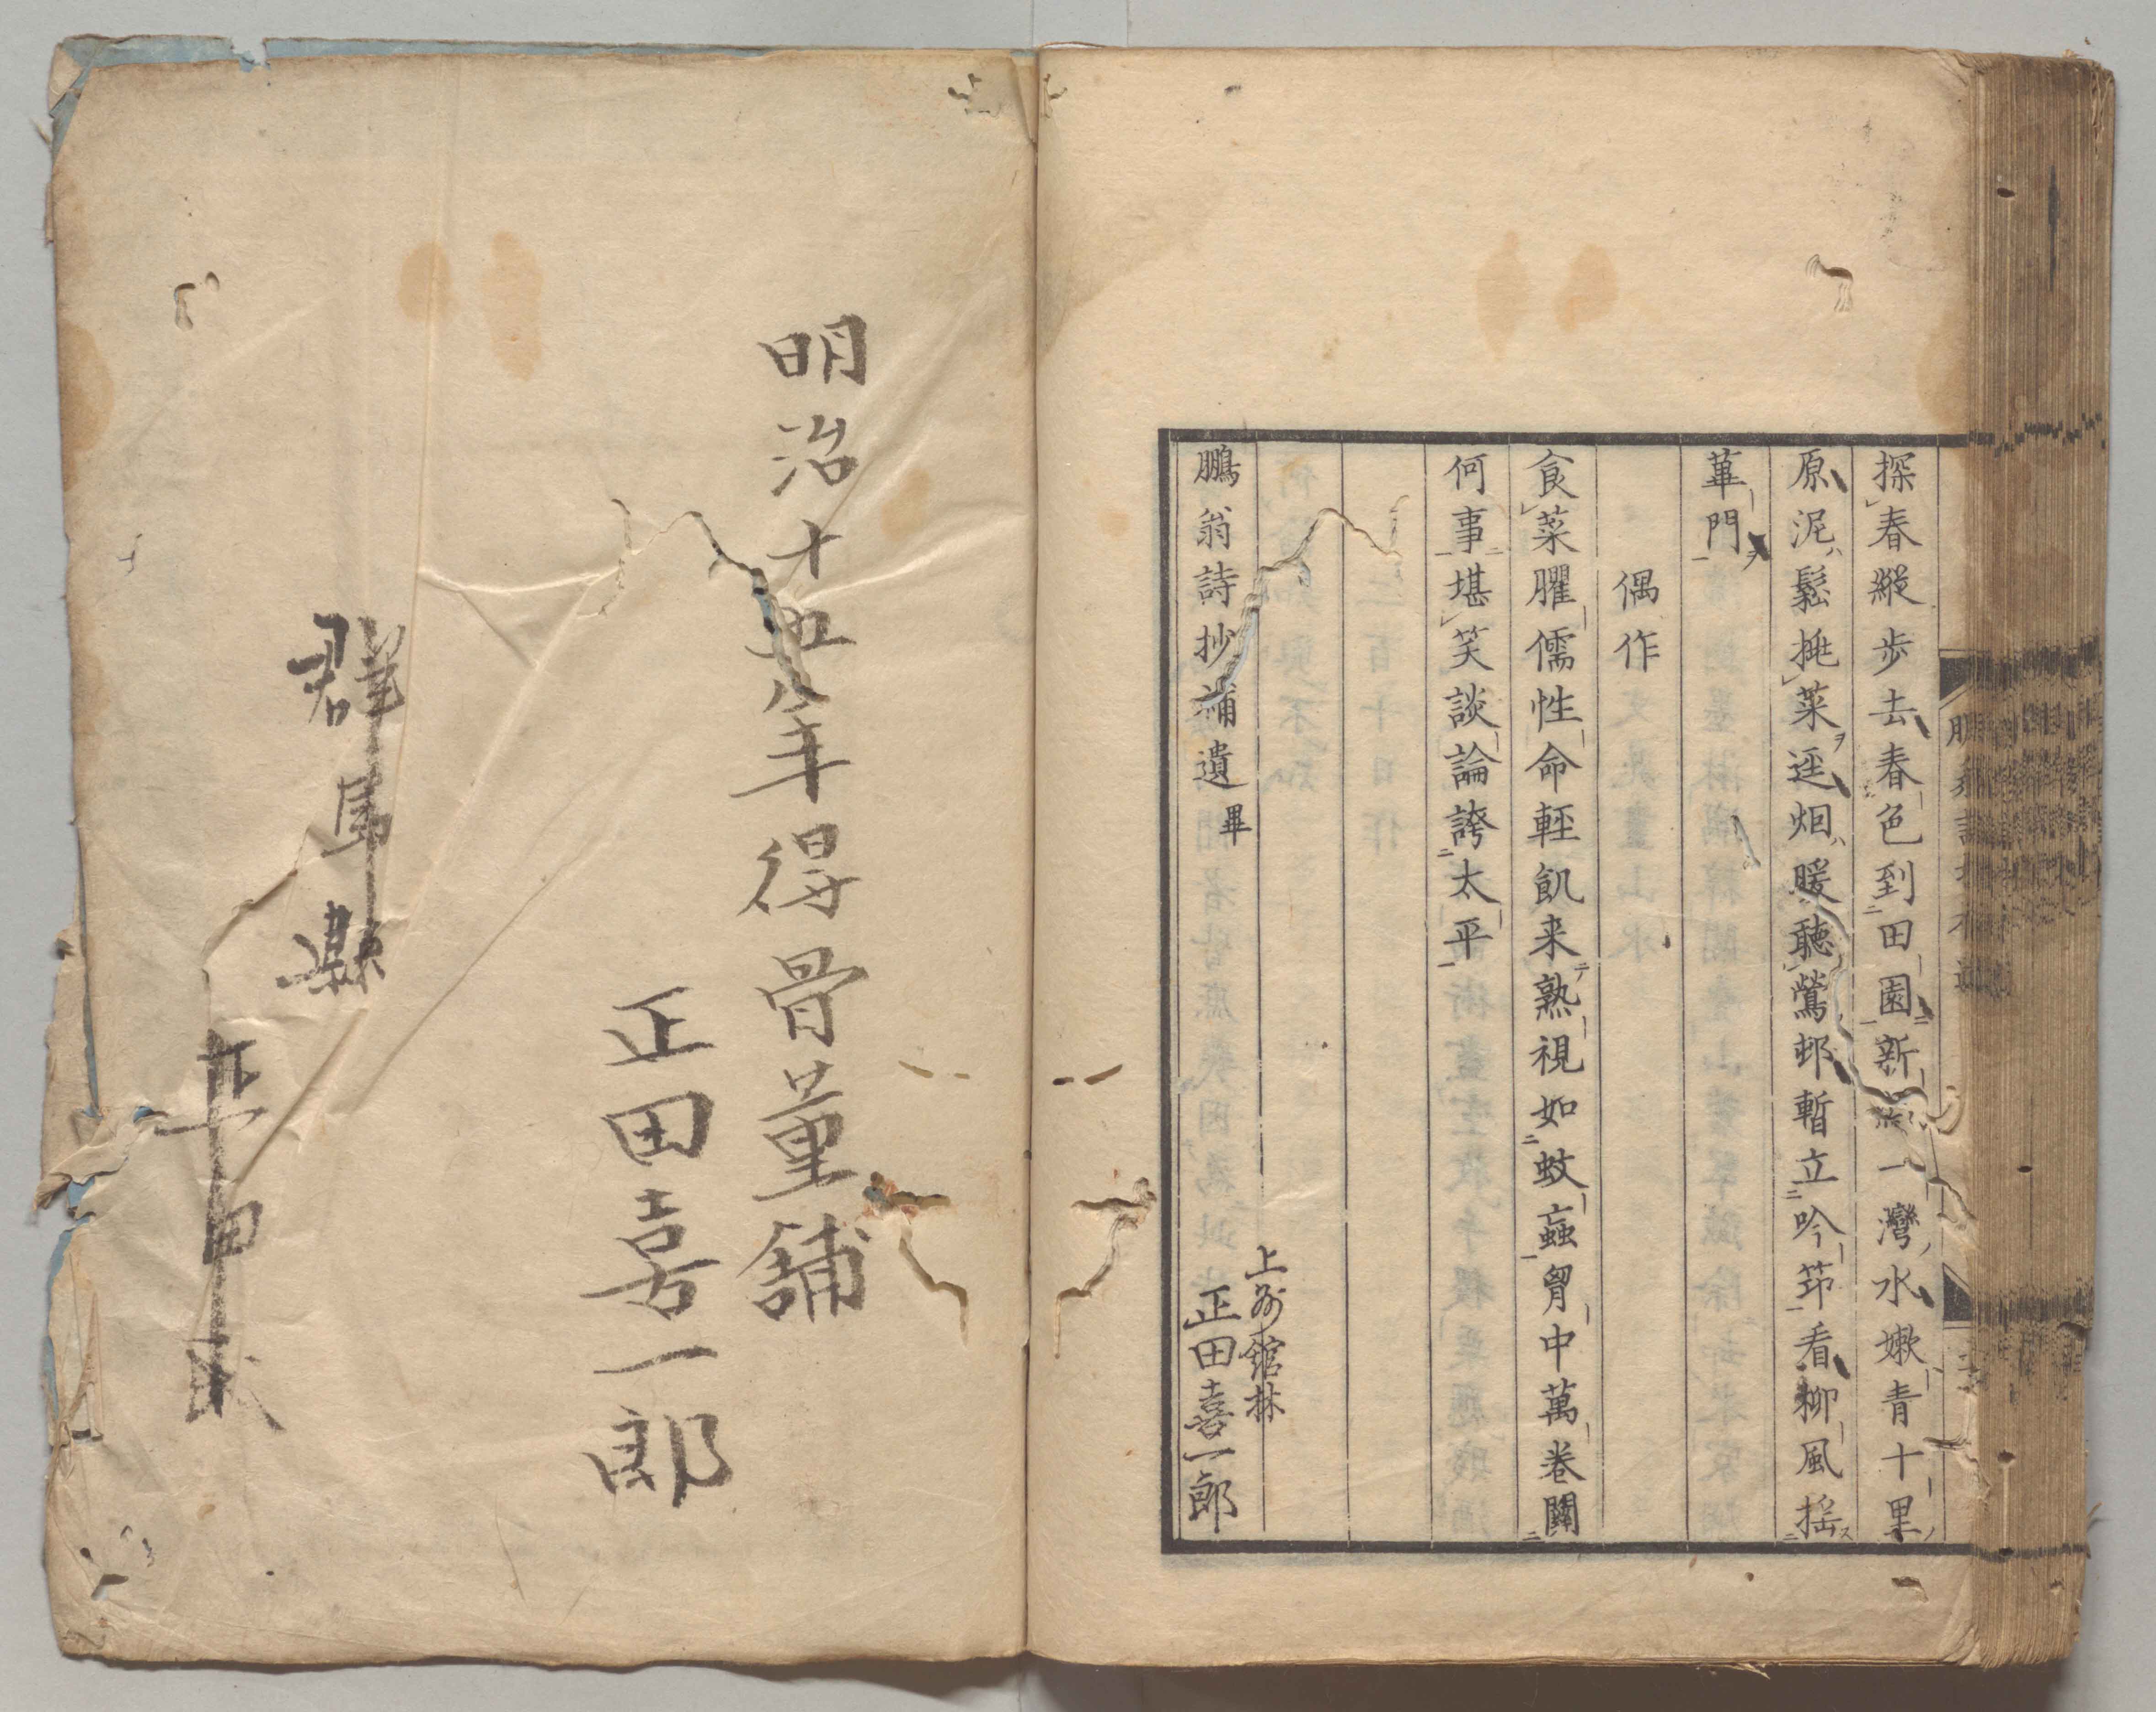 探春縱歩去春色到田園新漲一灣水嫰青十里
原泥鬆挑菜逕烟暖聽鶯邨暫立吟筇看柳風搖
蓽門
偶作
食菜臞儒性命輕飢来熟視如蚊蝱胷中萬卷闘
何事堪笑談論誇太平
鵬翁詩抄補遺畢
上州舘林
正田喜一郎
明治十四年得骨董舖
正田喜一郎
群馬縣